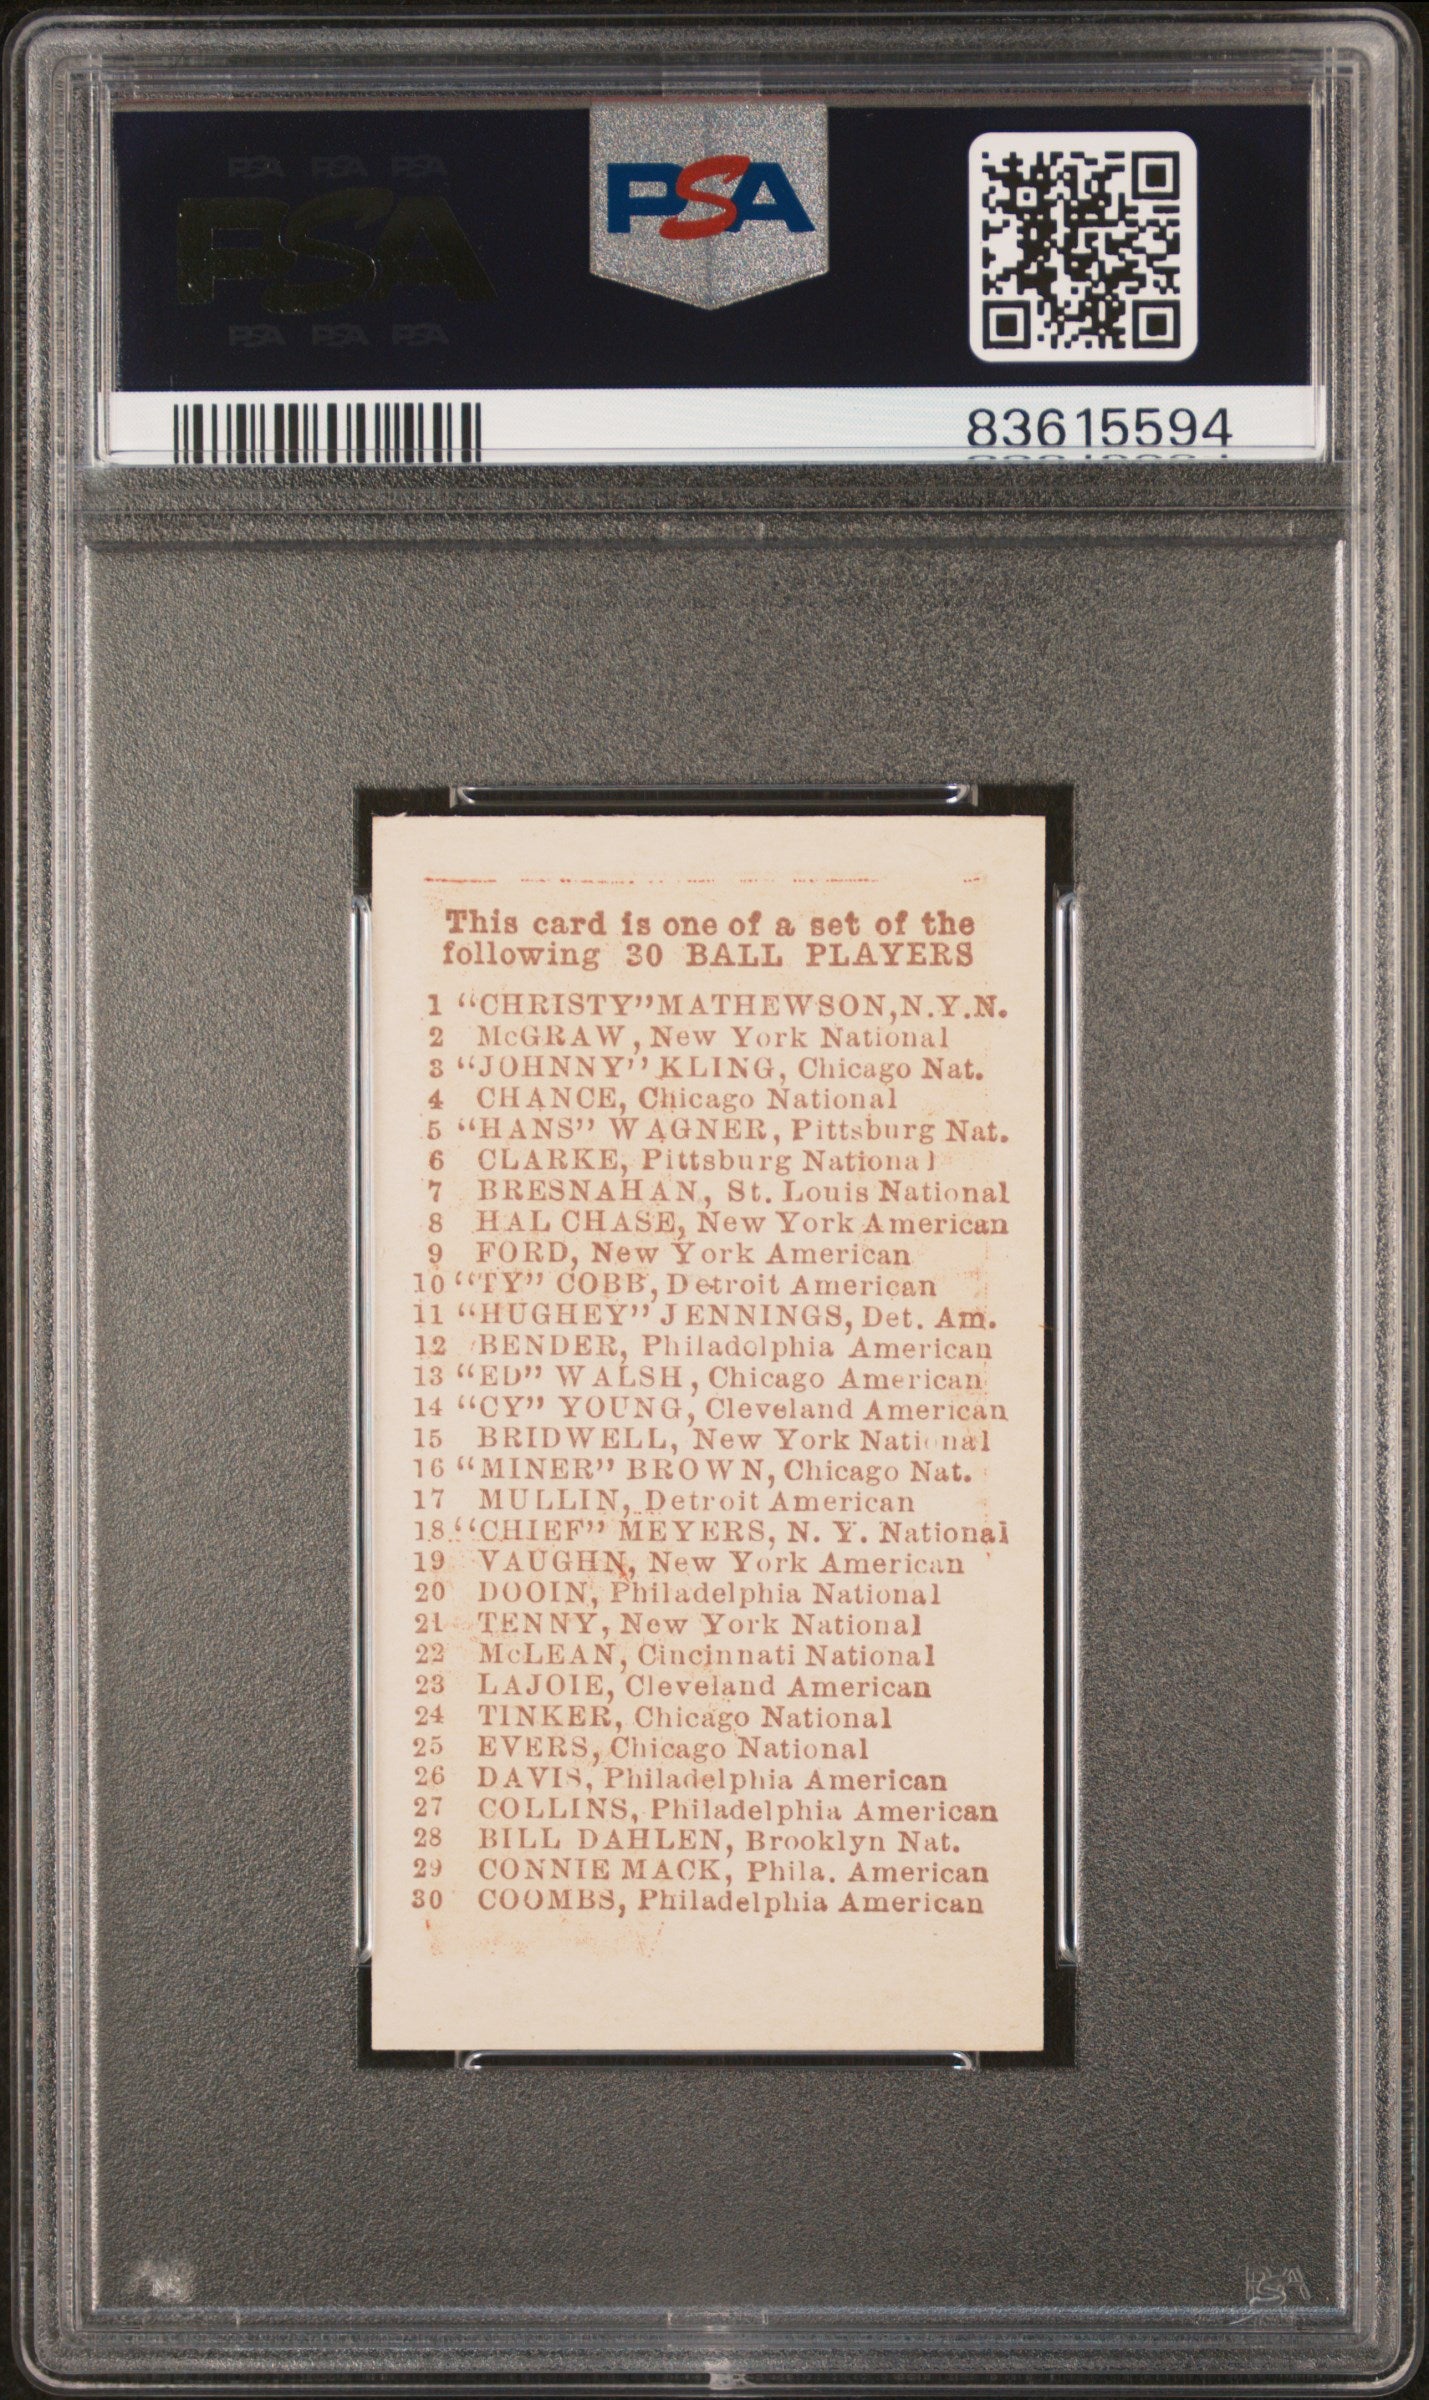 PSA PSA PSA
PSA
PSA PSA PSA
PSA
83615594
This card is one of a set of the
following 30 BALL PLAYERS
1 "CHRISTY" MATHEWSON, N.Y.N.
2 McGRAW, New York National
3 "JOHNNY" KLING, Chicago Nat.
4 CHANCE, Chicago National
5 "HANS" WAGNER, Pittsburg Nat.
6 CLARKE, Pittsburg National
7 BRESNAHAN, St. Louis National
8 HAL CHASE, New York American
9 FORD, New York American
10 "TY" COBB, Detroit American
11 "HUGHEY" JENNINGS, Det. Am.
12 BENDER, Philadelphia American
13 "ED" WALSH, Chicago American
14 "CY" YOUNG, Cleveland American
15 BRIDWELL, New York National
16 "MINER" BROWN, Chicago Nat.
17 MULLIN, Detroit American
18 "CHIEF" MEYERS, N. Y. National
19 VAUGHN, New York American
20 DOOIN, Philadelphia National
21 TENNY, New York National
22 McLEAN, Cincinnati National
23 LAJOIE, Cleveland American
24 TINKER, Chicago National
25 EVERS, Chicago National
26 DAVIS, Philadelphia American
27 COLLINS, Philadelphia American
28 BILL DAHLEN, Brooklyn Nat.
29 CONNIE MACK, Phila. American
30 COOMBS, Philadelphia American
PSA